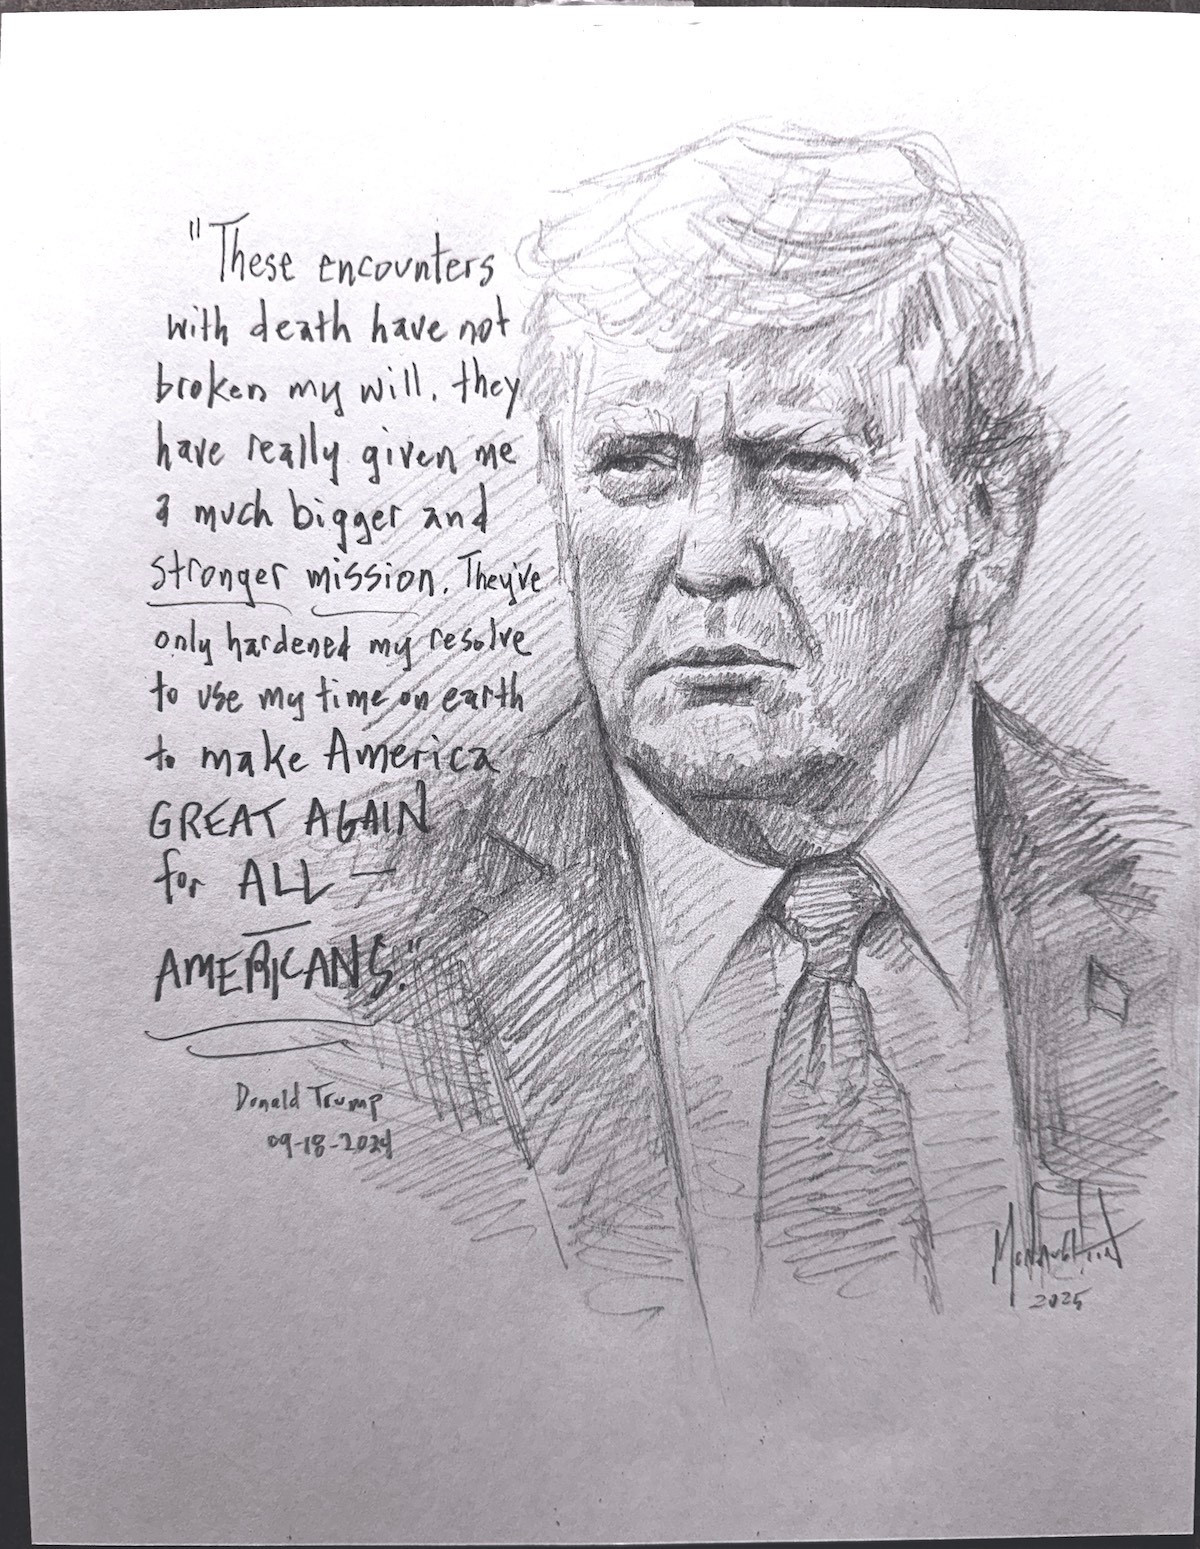 "These encounters
with death have not
broken my will. they
have really given me
a much bigger and
stronger mission. They've
only hardened my resolve
to use my time on earth
to make America
GREAT AGAIN
for ALL —
AMERICANS."
Donald Trump
09-18-2024
McNaughton
2025